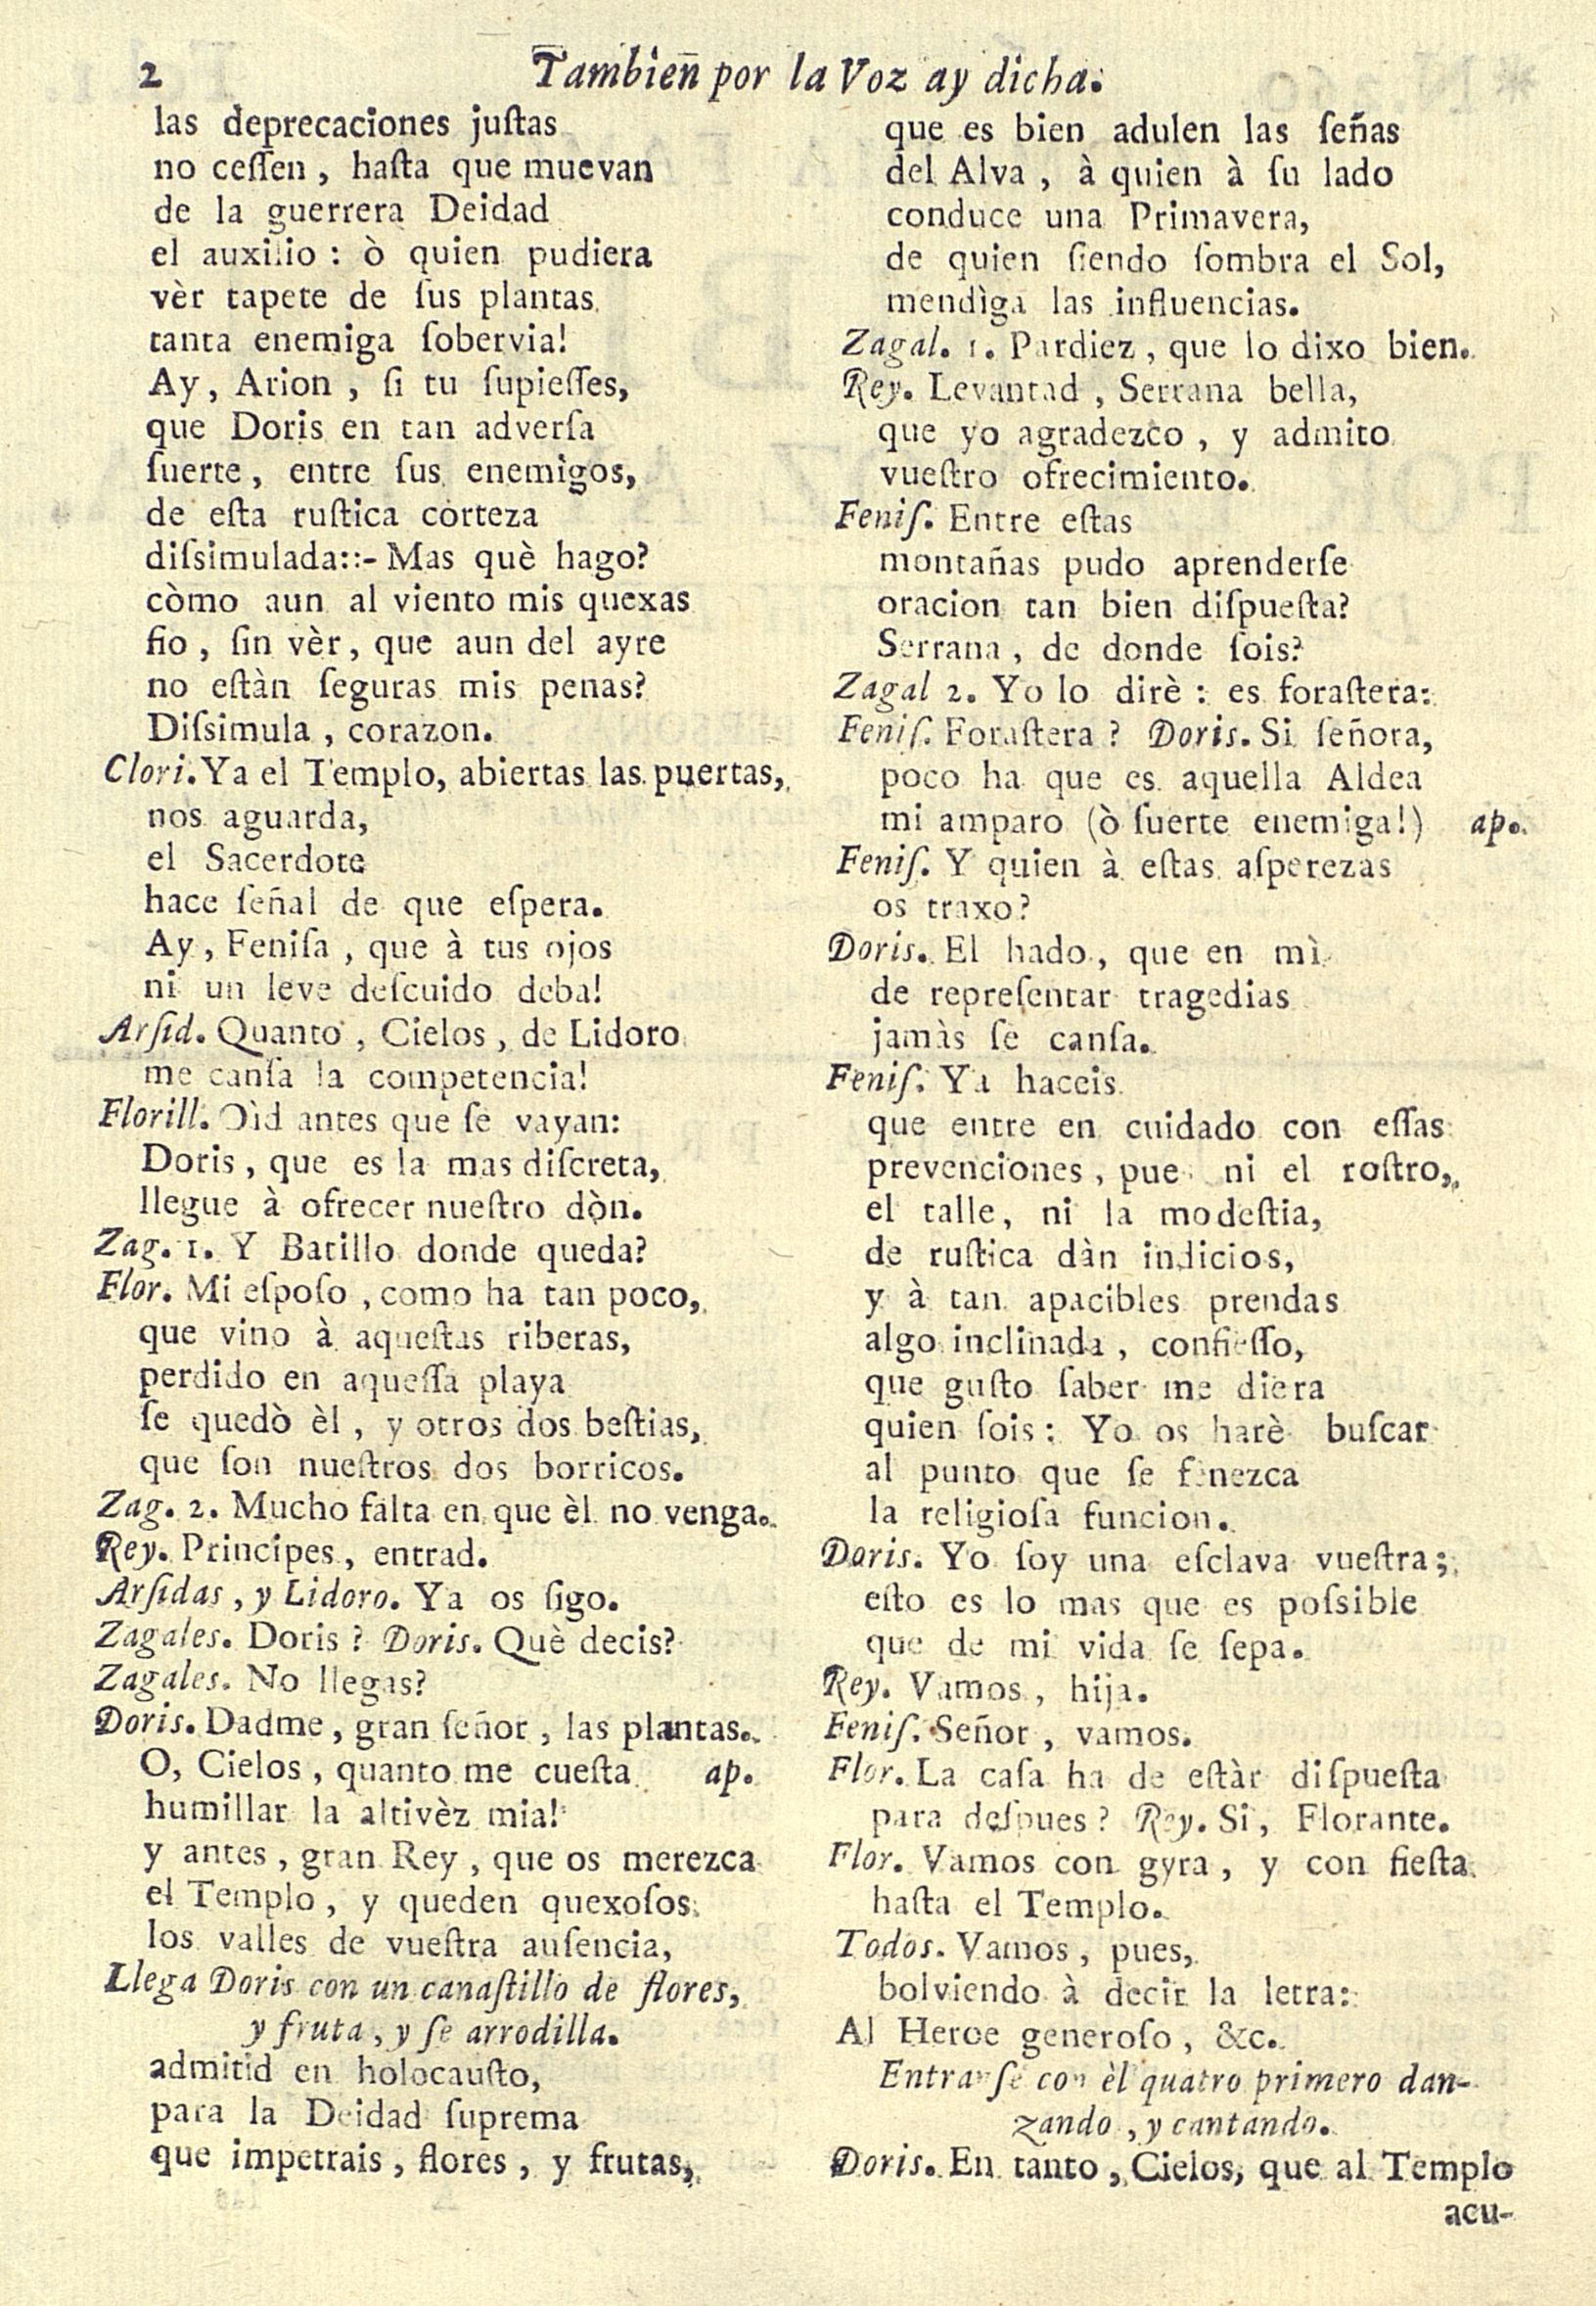 2 Tambien por la Voz ay dicha.
las deprecaciones juſtas
no ceſſen, haſta que muevan
de la guerrera Deidad
el auxilio: ò quien pudiera
vèr tapete de ſus plantas
tanta enemiga ſobervia!
Ay, Arion, ſi tu ſupieſſes,
que Doris en tan adverſa
ſuerte, entre ſus enemigos,
de eſta ruſtica corteza
diſsimulada::- Mas què hago?
còmo aun al viento mis quexas
fio, ſin vèr, que aun del ayre
no eſtàn ſeguras mis penas?
Diſsimula, corazon.
Clori. Ya el Templo, abiertas las puertas,
nos aguarda,
el Sacerdote
hace ſeñal de que eſpera.
Ay, Feniſa, que à tus ojos
ni un leve deſcuido deba!
Arſid. Quanto, Cielos, de Lidoro
me canſa la competencia!
Florill. Oìd antes que ſe vayan:
Doris, que es la mas diſcreta,
llegue à ofrecer nueſtro dòn.
Zag. 1. Y Batillo donde queda?
Flor. Mi eſpoſo, como ha tan poco,
que vino à aqueſtas riberas,
perdido en aqueſſa playa
ſe quedò èl, y otros dos beſtias,
que ſon nueſtros dos borricos.
Zag. 2. Mucho falta en que èl no venga.
Rey. Principes, entrad.
Arſidas, y Lidoro. Ya os ſigo.
Zagales. Doris? Doris. Què decis?
Zagales. No llegas?
Doris. Dadme, gran ſeñor, las plantas.
O, Cielos, quanto me cueſta ap.
humillar la altivèz mia!
y antes, gran Rey, que os merezca
el Templo, y queden quexoſos
los valles de vueſtra auſencia,
Llega Doris con un canaſtillo de flores,
y fruta, y ſe arrodilla.
admitid en holocauſto,
para la Deidad ſuprema
que impetrais, flores, y frutas,
que es bien adulen las ſeñas
del Alva, à quien à ſu lado
conduce una Primavera,
de quien ſiendo ſombra el Sol,
mendìga las influencias.
Zagal. 1. Pardiez, que lo dixo bien.
Rey. Levantad, Serrana bella,
que yo agradezco, y admito
vueſtro ofrecimiento.
Feniſ. Entre eſtas
montañas pudo aprenderſe
oracion tan bien diſpueſta?
Serrana, de donde ſois?
Zagal 2. Yo lo dirè: es foraſtera:
Feniſ. Foraſtera? Doris. Si ſeñora,
poco ha que es aquella Aldea
mi amparo (ò ſuerte enemiga!) ap.
Feniſ. Y quien à eſtas aſperezas
os traxo?
Doris. El hado, que en mì
de repreſentar tragedias
jamàs ſe canſa.
Feniſ. Ya haceis
que entre en cuidado con eſſas
prevenciones, pue ni el roſtro,
el talle, ni la modeſtia,
de ruſtica dàn indicios,
y à tan apacibles prendas
algo inclinada, confieſſo,
que guſto ſaber me diera
quien ſois: Yo os harè buſcar
al punto que ſe fenezca
la religioſa funcion.
Doris. Yo ſoy una eſclava vueſtra;
eſto es lo mas que es poſsible
que de mi vida ſe ſepa.
Rey. Vamos, hija.
Feniſ. Señor, vamos.
Flor. La caſa ha de eſtàr diſpueſta
para deſpues? Rey. Si, Florante.
Flor. Vamos con gyra, y con fieſta
haſta el Templo.
Todos. Vamos, pues,
bolviendo à decir la letra:
Al Heroe generoſo, &c.
Entranſe con èl quatro primero dan-
zando, y cantando.
Doris. En tanto, Cielos, que al Templo
acu-